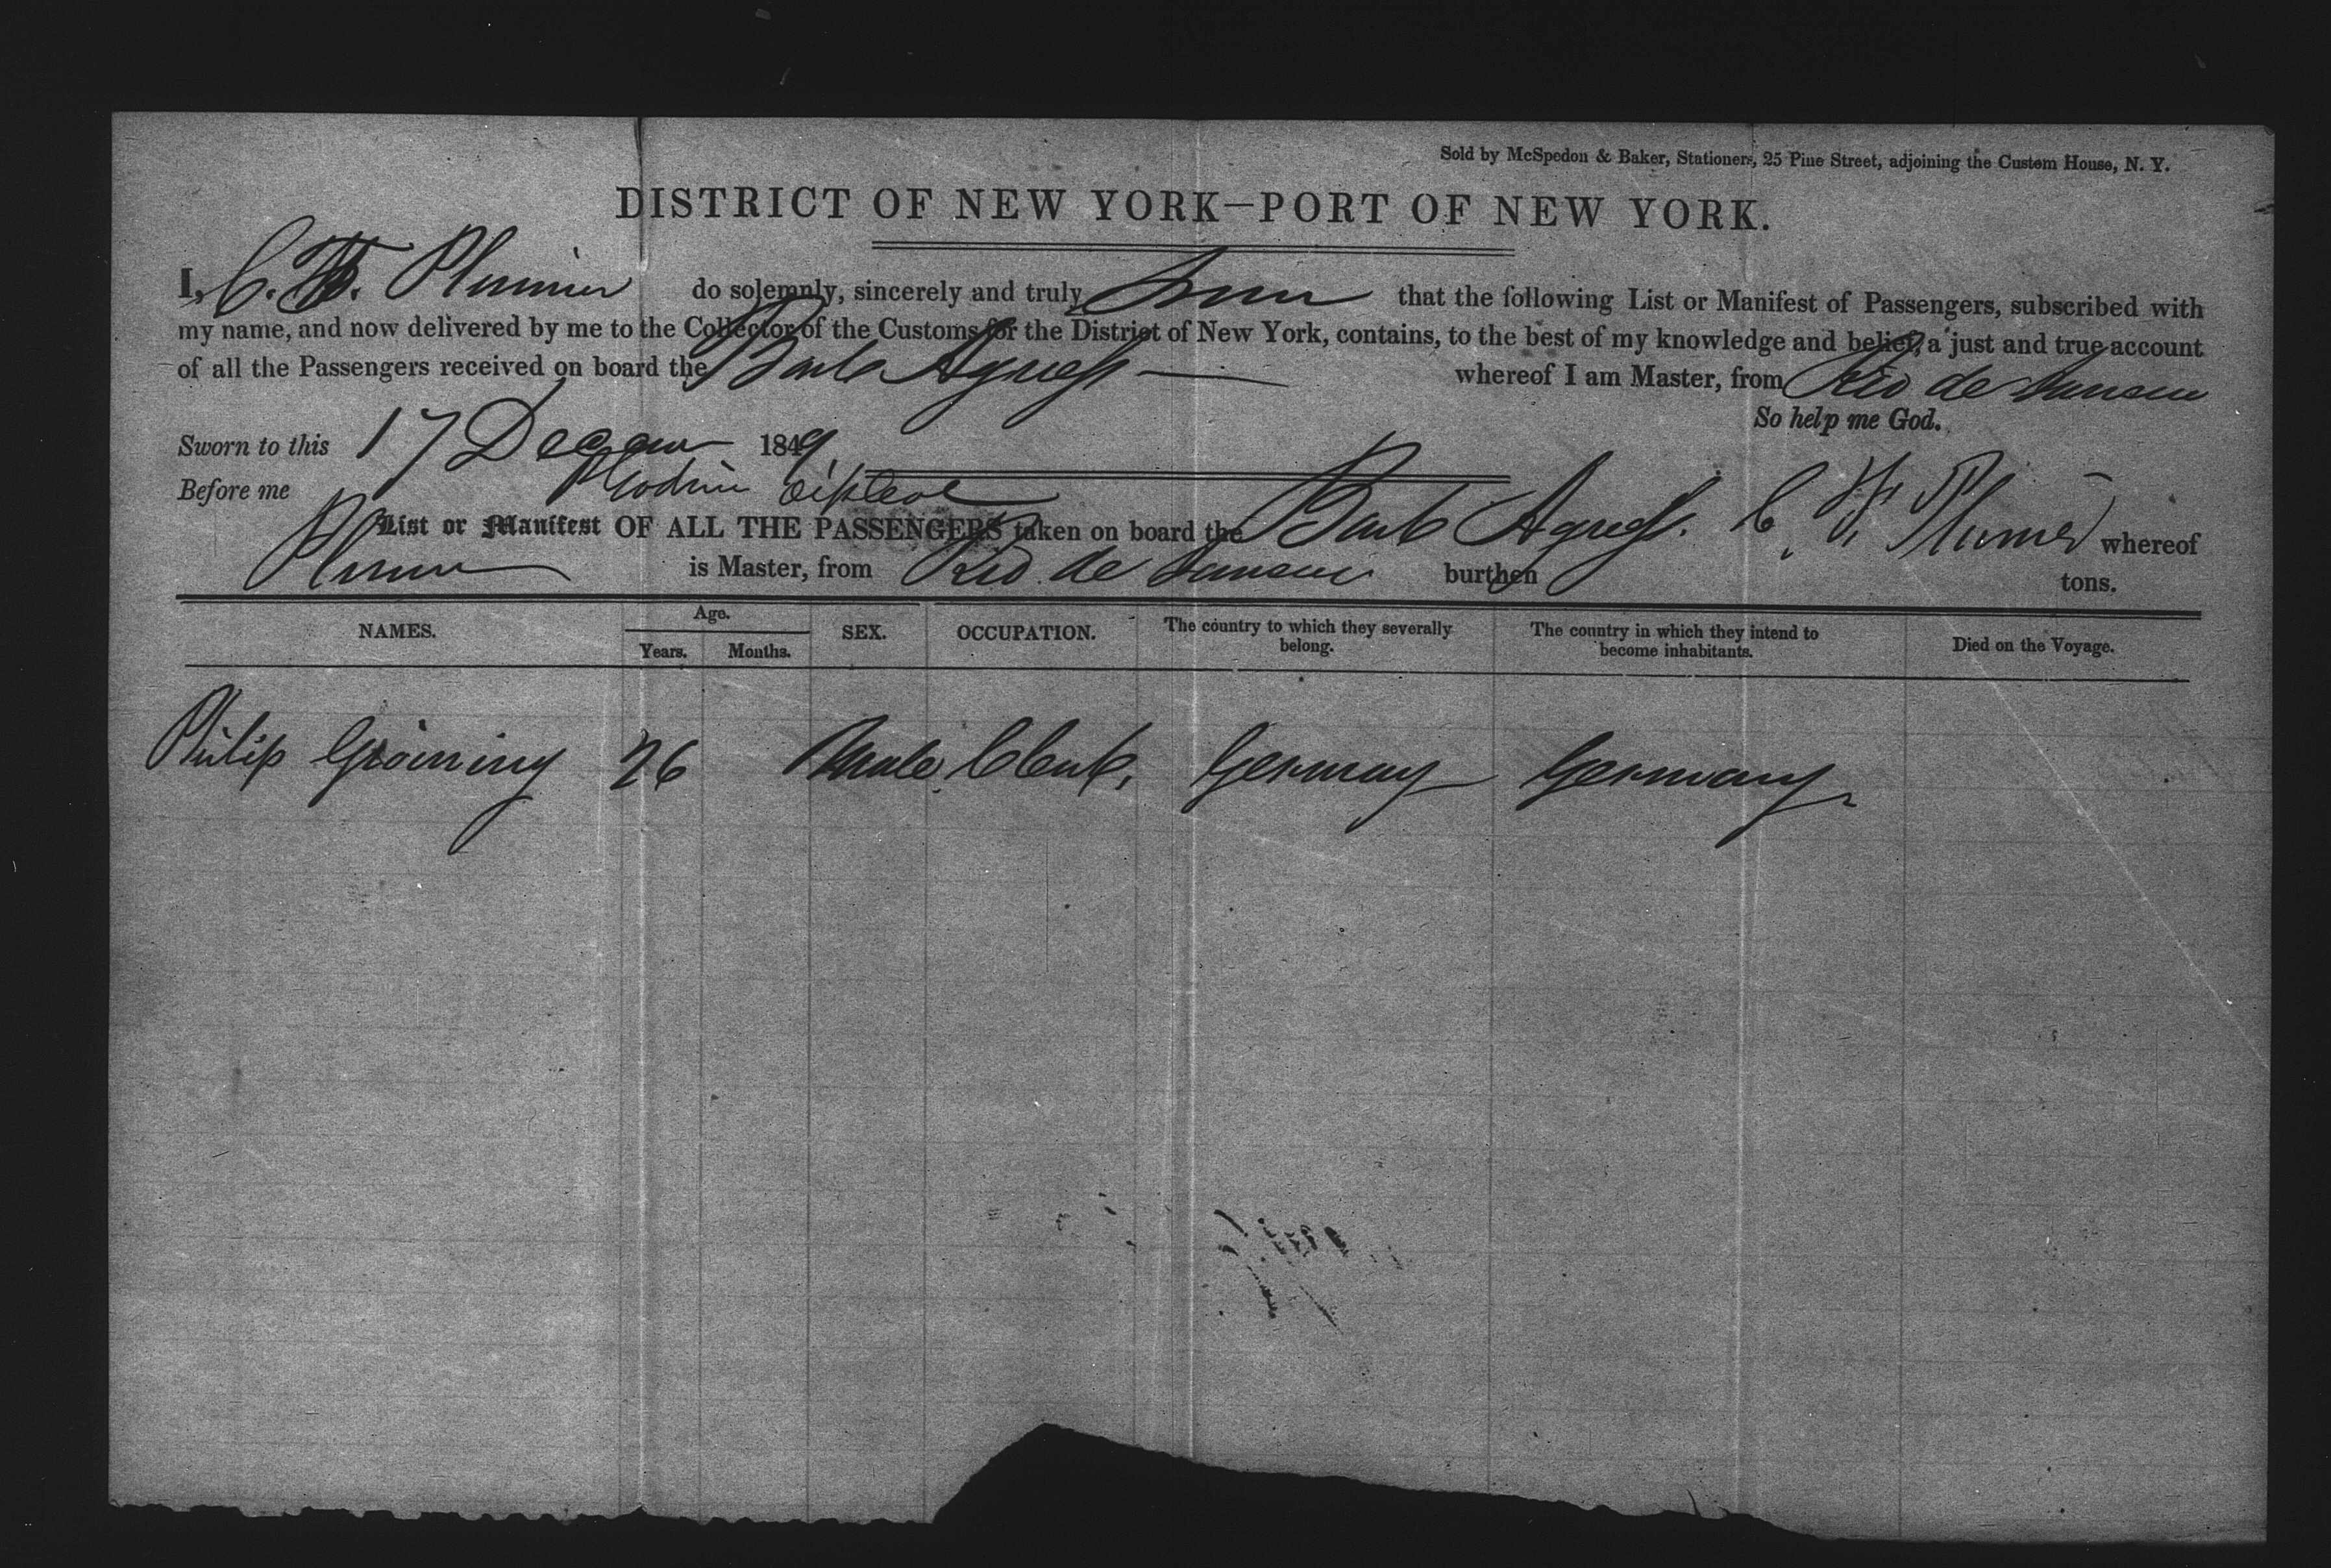 Sold by McSpedon & Baker, Stationers, 25 Pine Street, adjoining the Custom House, N. Y.
DISTRICT OF NEW YORK—PORT OF NEW YORK.
I, C. W. Plummer do solemnly, sincerely and truly that the following List or Manifest of Passengers, subscribed with
my name, and now delivered by me to the Collector of the Customs for the District of New York, contains, to the best of my knowledge and belief, a just and true account
of all the Passengers received on board the Bark Agness whereof I am Master, from Rio de Janeiro
So help me God.
Sworn to this 17 1849
Before me
List or Manifest OF ALL THE PASSENGERS taken on board the Bark Agness. whereof
is Master, from Rio de Janeiro burthen tons.
NAMES. Age. Years. Months. SEX. OCCUPATION. The country to which they severally belong. The country in which they intend to become inhabitants. Died on the Voyage.
Philip 26 Male Clerk, Germany Germany